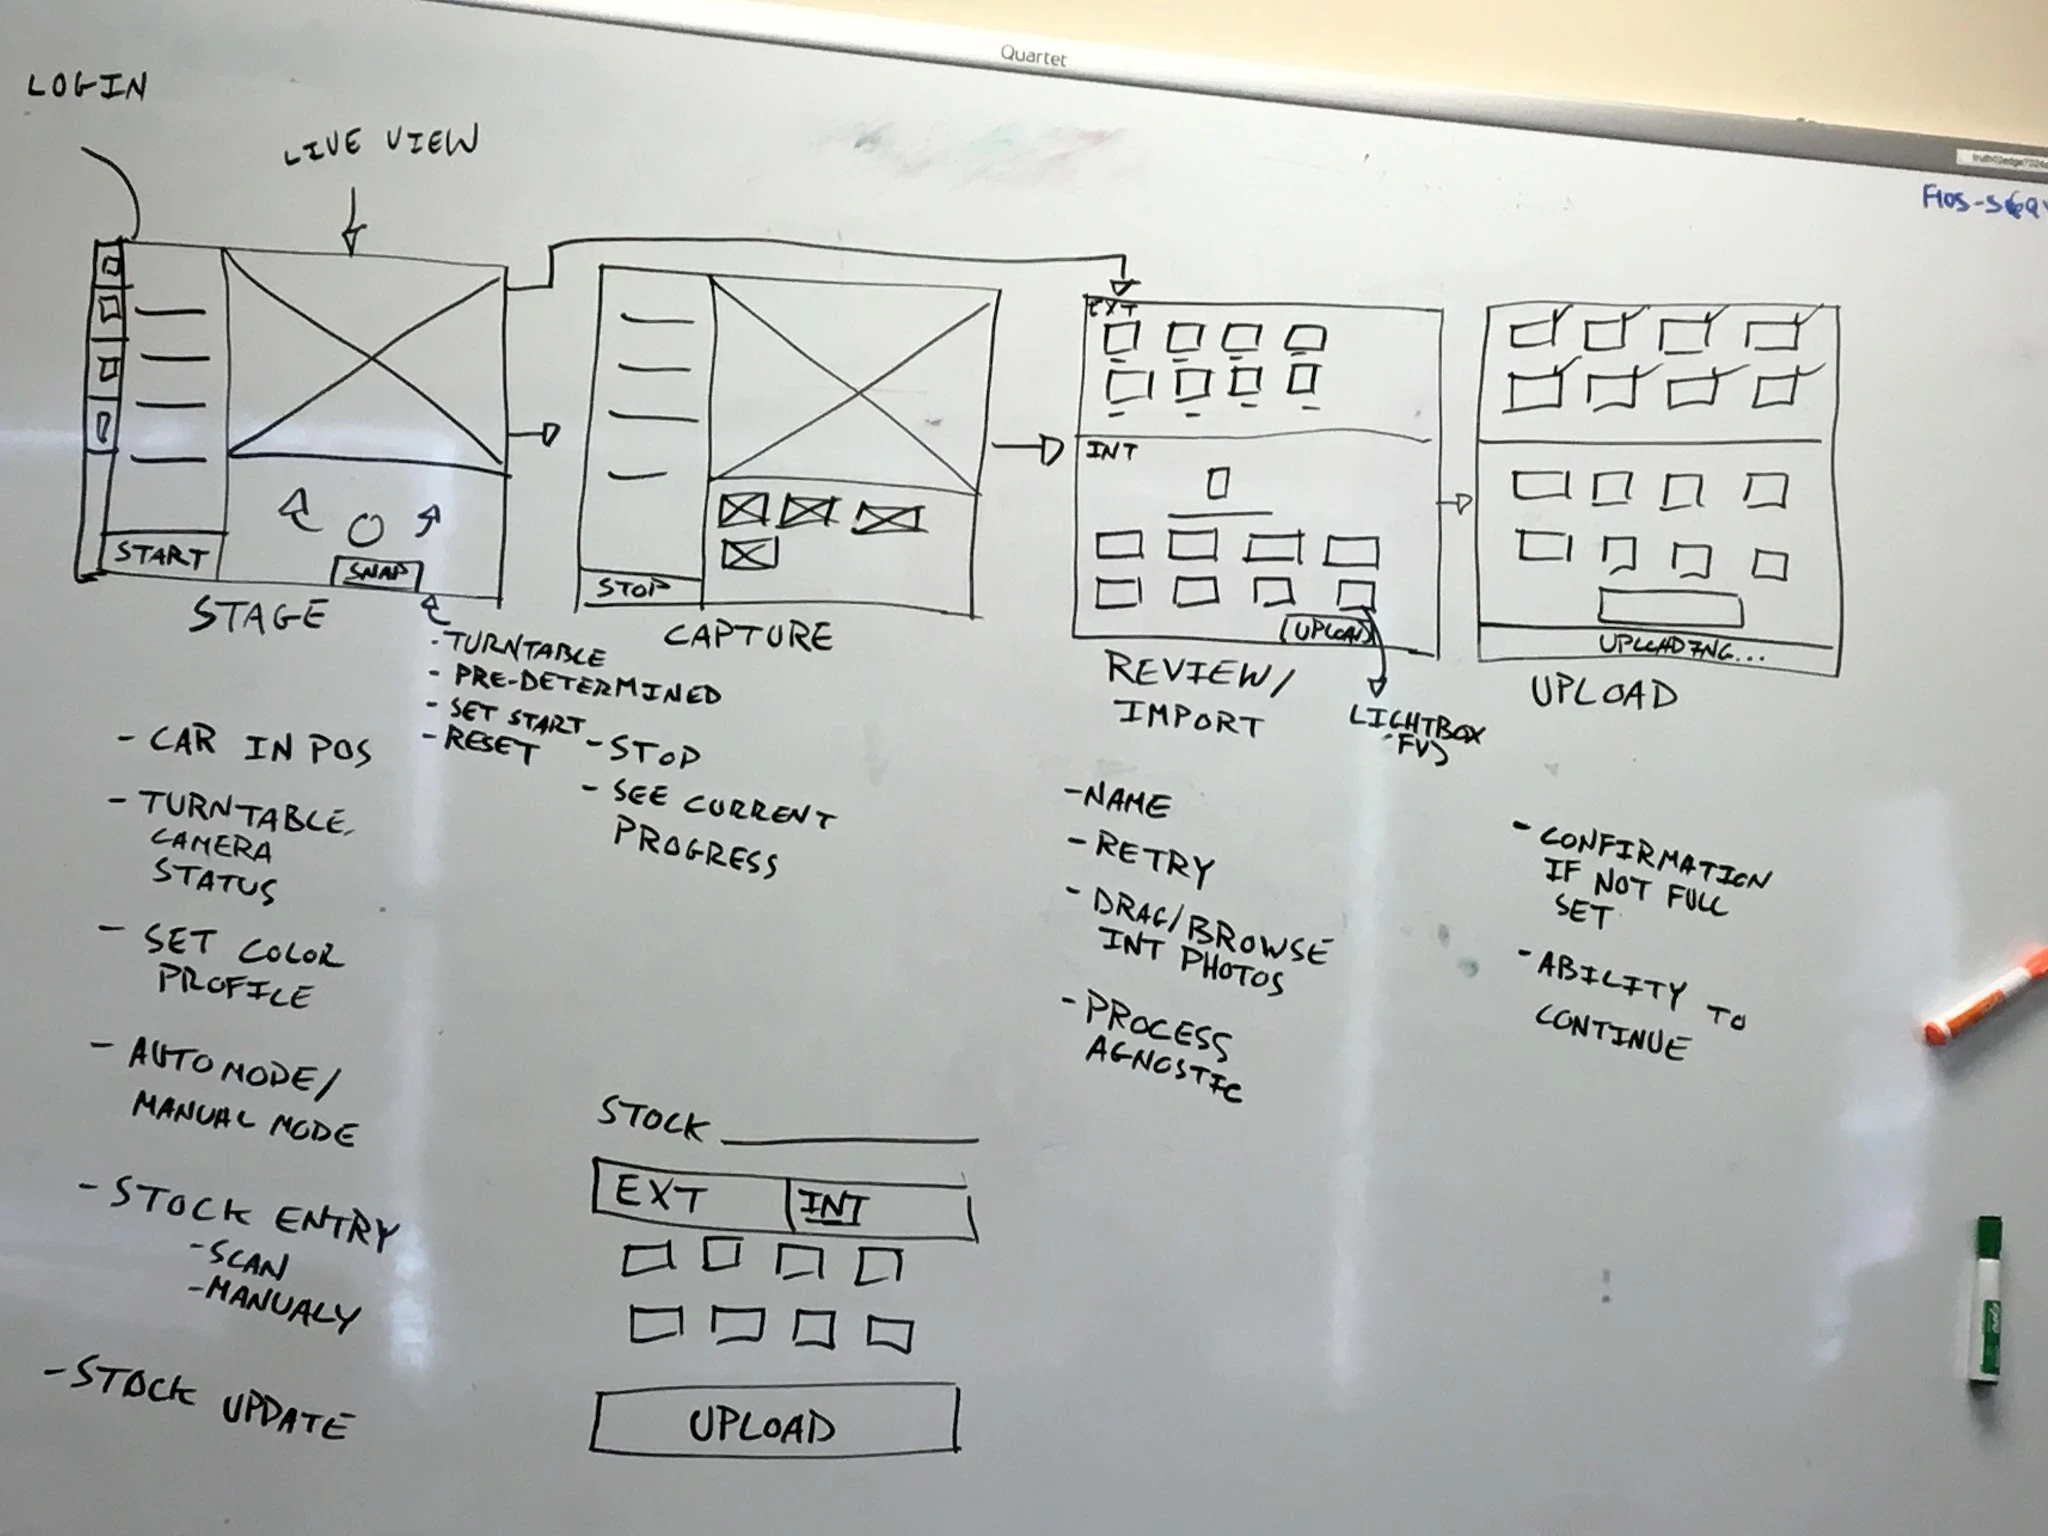 Quartet
LOGIN
LIVE VIEW
START
SNAP
STAGE
- TURNTABLE
- PRE-DETERMINED
- SET START
- RESET
- CAR IN POS
- TURNTABLE,
CAMERA
STATUS
- SET COLOR
PROFILE
- AUTO MODE/
MANUAL MODE
- STOCK ENTRY
- SCAN
- MANUALY
- STOCK UPDATE
STOP
CAPTURE
- STOP
- SEE CURRENT
PROGRESS
STOCK
EXT INT
UPLOAD
EXT
INT
UPLOAD
REVIEW/
IMPORT
LIGHTBOX
- NAME
- RETRY
- DRAG/BROWSE
INT PHOTOS
- PROCESS
AGNOSTIC
UPLOADING...
UPLOAD
- CONFIRMATION
IF NOT FULL
SET
- ABILITY TO
CONTINUE